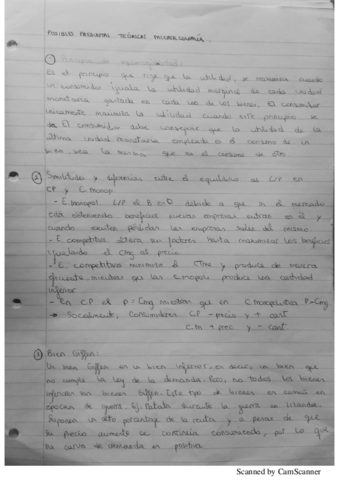 POSIBLES PREGUNTAS TEÓRICAS MICROECONOMÍA.
①
Es el principio que rige que la utilidad, se maximiza cuando
un consumidor iguala la utilidad marginal de cada unidad
monetaria gastada en cada uno de los bienes. El consumidor
únicamente maximiza la utilidad cuando este principio se
El consumidor debe conseguir que la utilidad de la
última unidad monetaria empleada en el consumo de un
bien, sea la misma, que en el consumo de otro
② Similitudes y diferencias entre el equilibrio al L/P en
CP y C. Monop.
- C. Monopol L/P el B = 0 debido a que si en el mercado
están obteniendo beneficios nuevas empresas entran en él y
cuando existen pérdidas las empresas salen del mismo
- E. competitiva altera sus factores hasta maximizar los beneficios
igualando el Cmg al precio
- E. competitiva minimiza el CTme y produce de manera
eficiente mientras que las C. Monopol. produce una cantidad
inferior
- En CP el P = Cmg mientras que en C. Monopolística P > Cmg
Socialmente, Consumidores CP - precio y + cant
C.M + prec y - cant
③ Bien Giffen:
Un bien Giffen es un bien inferior, es decir, un bien que
no cumple la ley de la demanda. Pero, no todos los bienes
inferiores son bienes Giffen. Este tipo de bienes es común en
épocas de guerra. Ej. Patata durante la guerra de Irlanda.
Suponen un alto porcentaje de la renta y a pesar de que
su precio aumente se continúa consumiendo, por lo que
su curva de demanda es positiva
Scanned by CamScanner